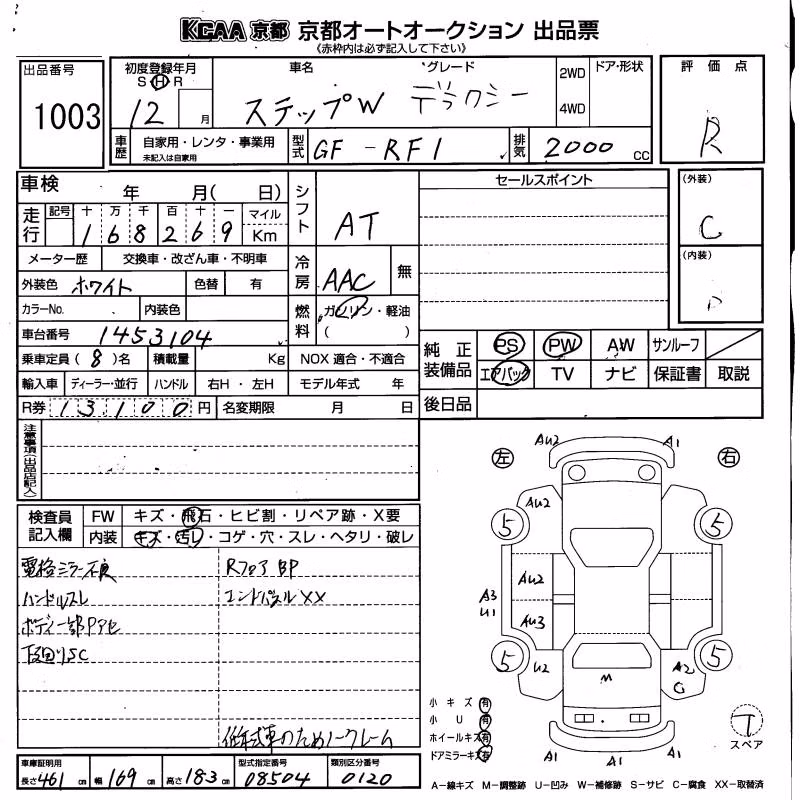 KCAA 京都 京都オートオークション 出品票
《赤枠内は必ず記入して下さい》
出品番号
1003
初度登録年月
S H R
12 月
車名
ステップW
グレード
デラクシー
2WD
4WD
ドア・形状
評価点
R
車歴
自家用・レンタ・事業用
未記入は自家用
型式
GF-RF1
排気
2000 cc
車検 年 月( 日)
走行
記号 十 万 千 百 十 一
168269
マイル
Km
シフト
AT
セールスポイント
(外装)
C
(内装)
D
メーター歴 交換車・改ざん車・不明車
冷房
AAC
無
外装色 ホワイト 色替 有
カラーNo. 内装色
燃料
ガソリン・軽油
( )
車台番号 1453104
乗車定員 (8)名 積載量 Kg NOX 適合・不適合
輸入車 ディーラー・並行 ハンドル 右H・左H モデル年式 年
R券 13100 円 名変期限 月 日
純正装備品
PS PW AW サンルーフ
エアバック TV ナビ 保証書 取説
後日品
注意事項(出品店記入)
検査員記入欄
FW キズ・飛石・ヒビ割・リペア跡・X要
内装 キズ・汚レ・コゲ・穴・スレ・ヘタリ・破レ
電格ミラー不良
ハンドルスレ
ボディ一部Pアセ
下回りSC
Rフロア BP
エンドパネルXX
低年式車のためノークレーム
左 右
AU2 A1
AU2
5 5
AU2
A3
U1
AU3
5 5
U2
A2
C
M
A1 A1 A1
小キズ 有
小U 有
ホイールキズ 有
ドアミラーキズ 有
T
スペア
車庫証明用
長さ 461 cm 幅 169 cm 高さ 183 cm
型式指定番号
08504
類別区分番号
0120
A−線キズ M−調整跡 U−凹み W−補修跡 S−サビ C−腐食 XX−取替済